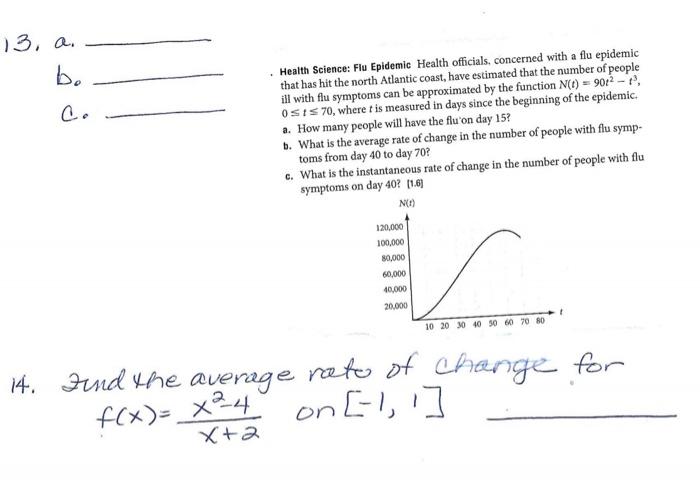 13. a.
b.
c.
Health Science: Flu Epidemic Health officials, concerned with a flu epidemic
that has hit the north Atlantic coast, have estimated that the number of people
ill with flu symptoms can be approximated by the function N(t) = 90t² − t³,
0 ≤ t ≤ 70, where t is measured in days since the beginning of the epidemic.
a. How many people will have the flu on day 15?
b. What is the average rate of change in the number of people with flu symp-
toms from day 40 to day 70?
c. What is the instantaneous rate of change in the number of people with flu
symptoms on day 40? [1.6]
N(t)
120,000
100,000
80,000
60,000
40,000
20,000
t
10 20 30 40 50 60 70 80
14. Find the average rate of change for
f(x) = x²-4 / x+2 on [-1, 1]